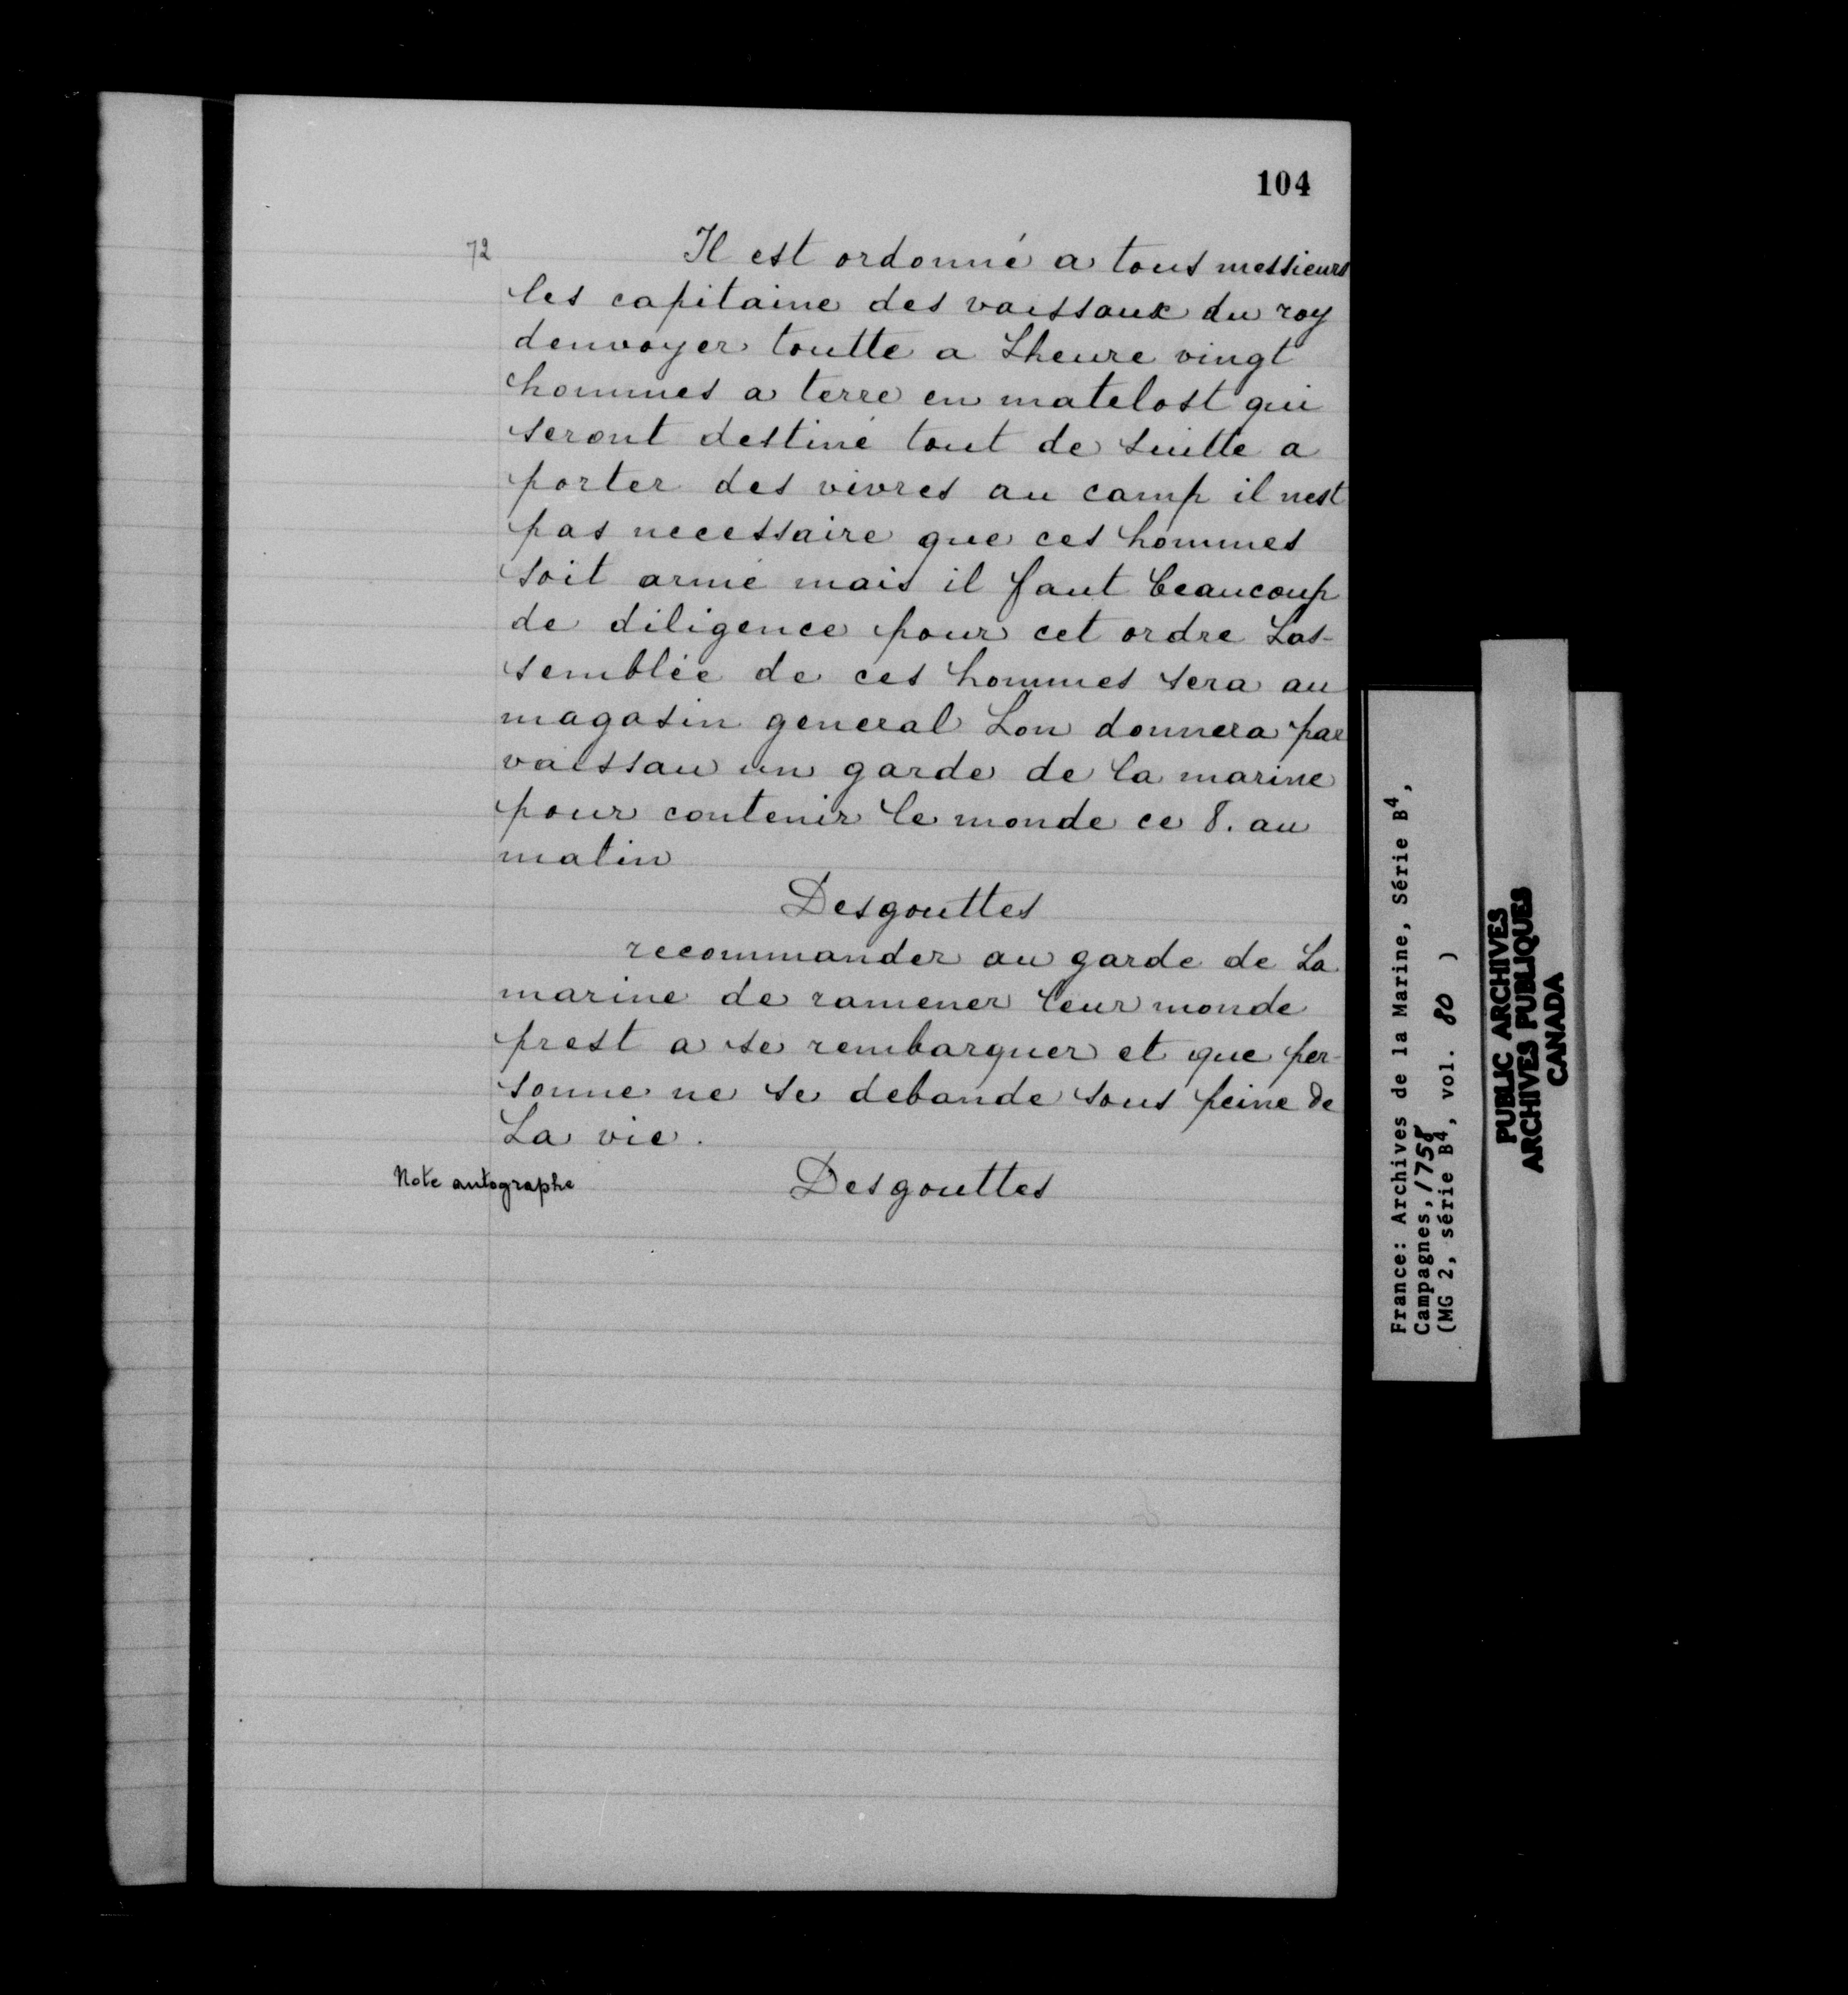 104
72
Il est ordonné a tous messieurs
les capitaine des vaissaux du roy
denvoyer toutte a Lheure vingt
hommes a terre en matelost qui
seront destiné tout de suitte a
porter des vivres au camp il nest
pas necessaire que ces hommes
soit armé mais il faut beaucoup
de diligence pour cet ordre Las-
semblée de ces hommes sera au
magasin general Lon donnera par
vaissau un garde de la marine
pour contenir le monde ce 8. au
matin
Desgouttes
recommander au garde de La
marine de ramener leur monde
prest a se rembarquer et que per-
sonne ne se debande sous peine de
La vie.
Note autographe
Desgouttes
France: Archives de la Marine, Série B4,
Campagnes, 1758
(MG 2, série B4, vol. 80 )
PUBLIC ARCHIVES
ARCHIVES PUBLIQUES
CANADA